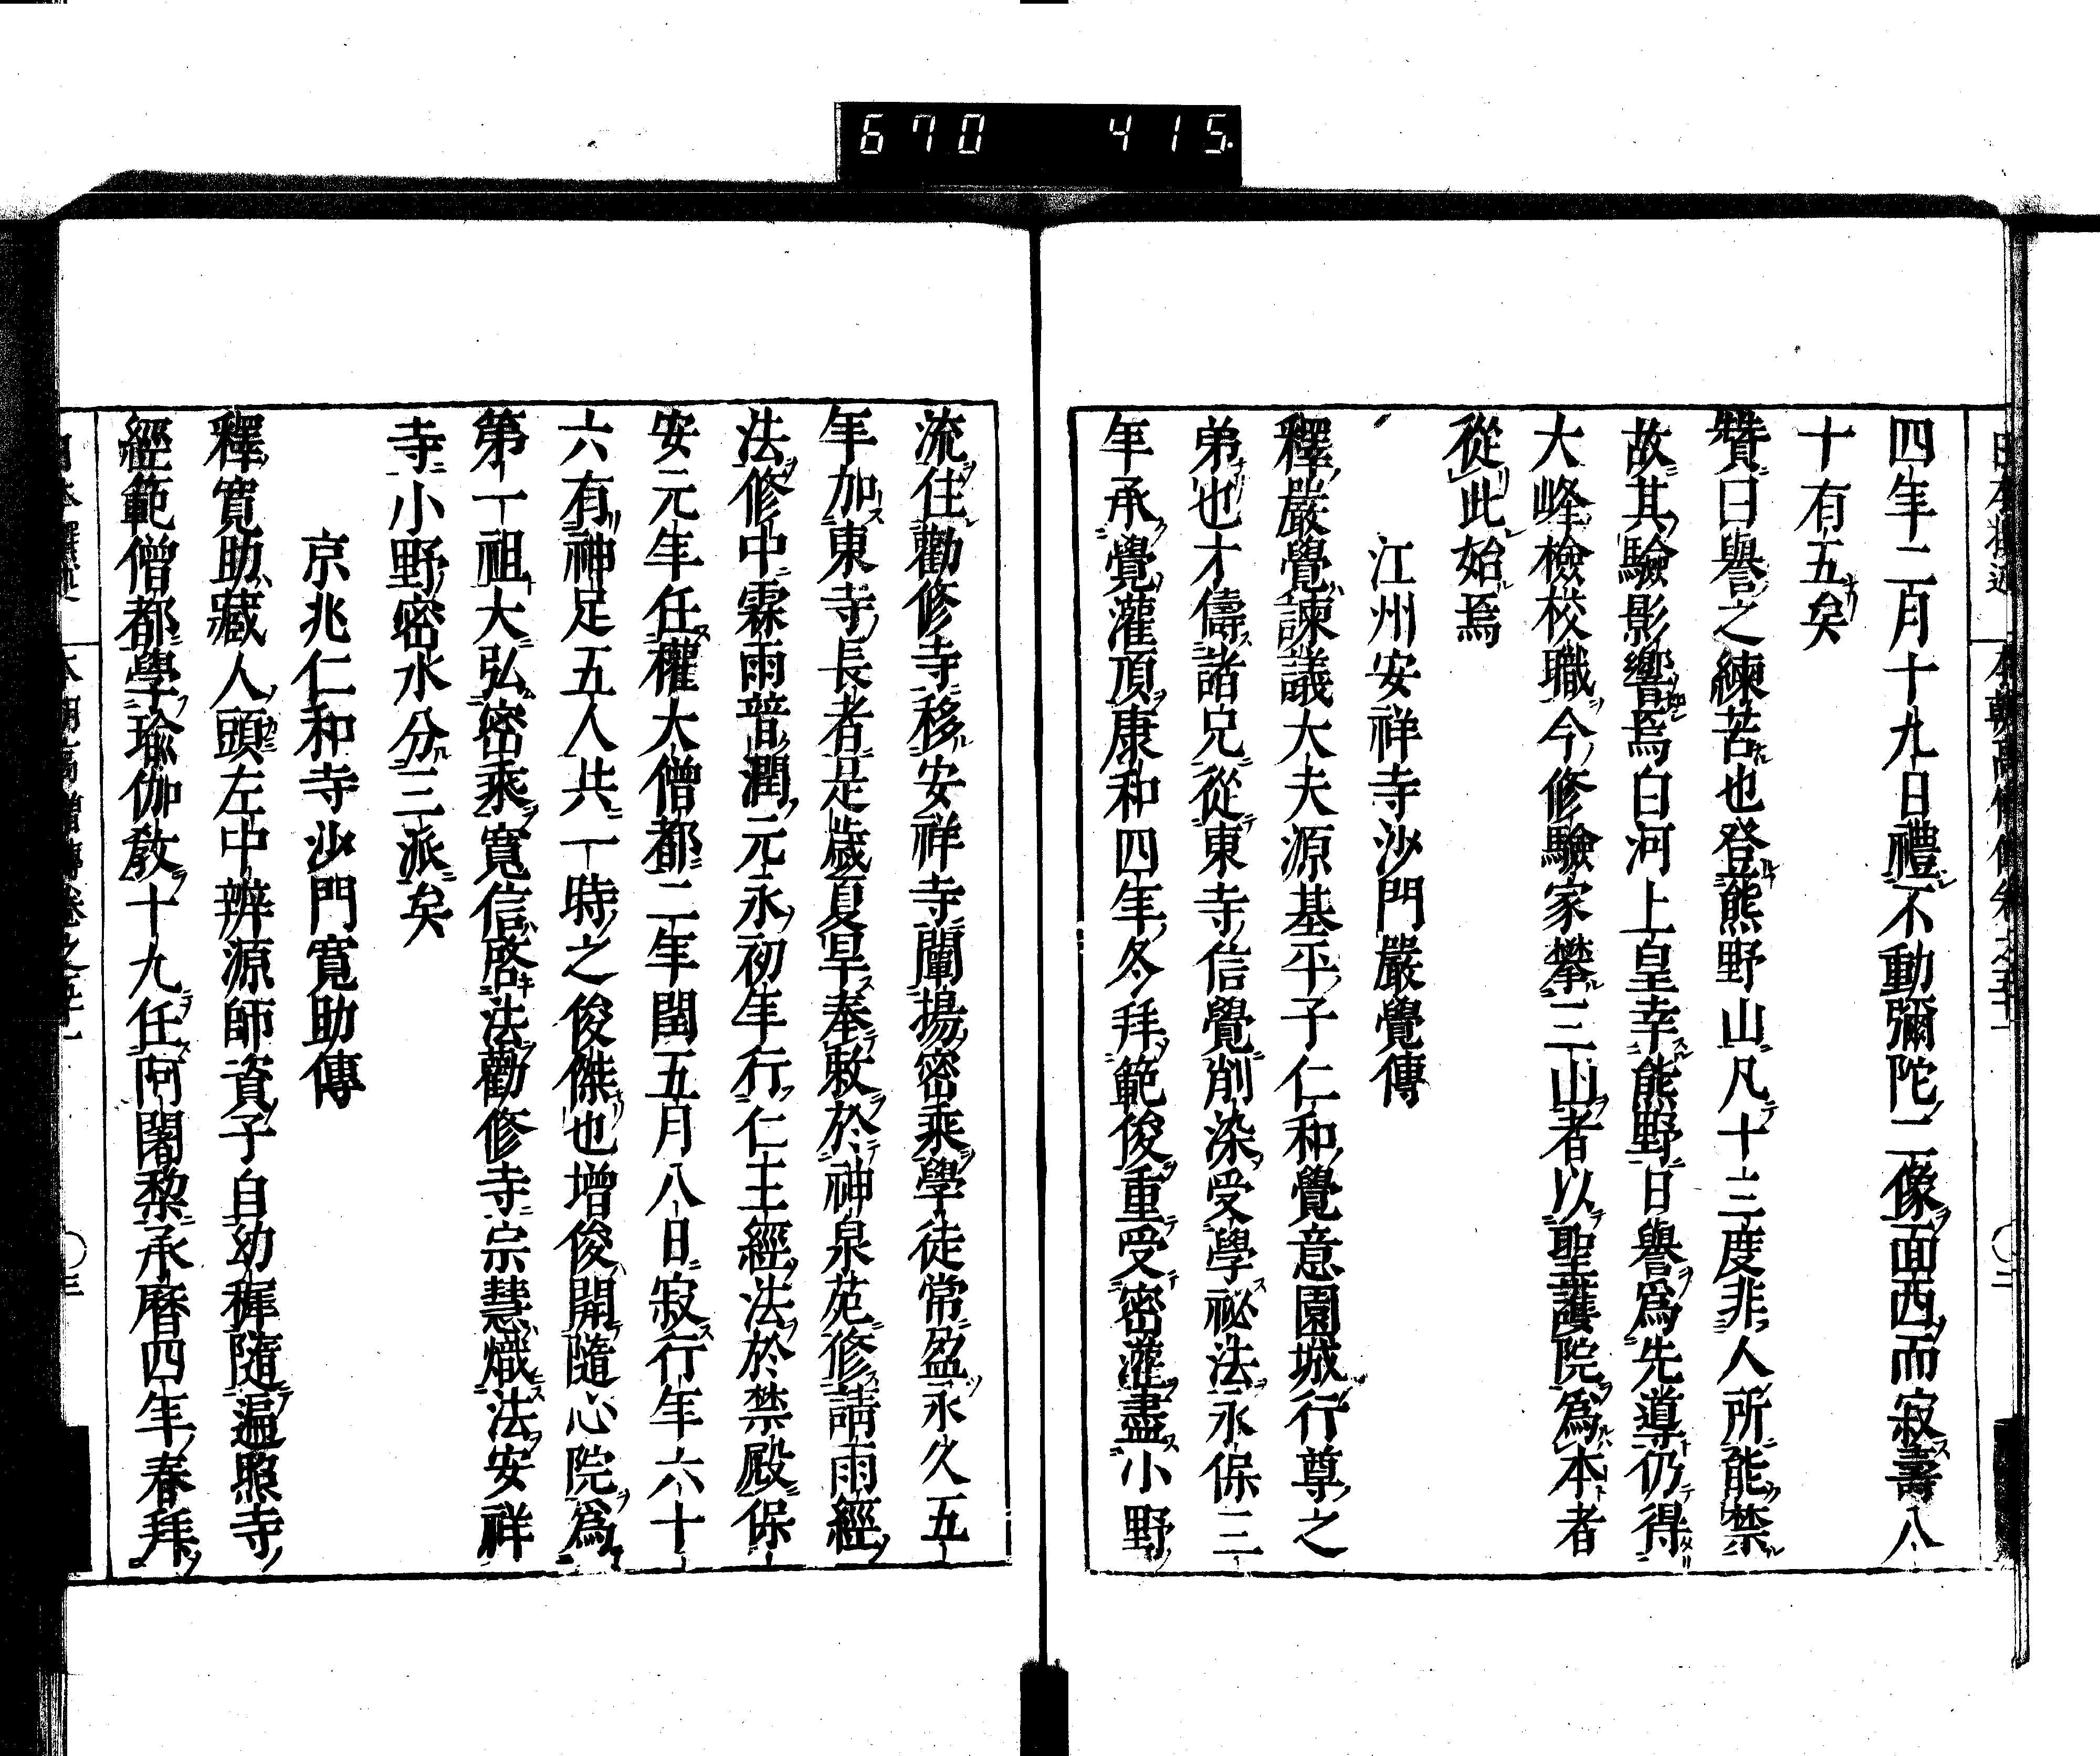 670 415
四年二月十九日禮不動彌陀二像面西而寂壽八
十有五矣
贊曰譽之練苦也登熊野山凡十三度非人所能禁
故其驗影響焉白河上皇幸熊野日譽爲先導仍得
大峰檢校職今修驗家攀三山者以聖護院爲本者
從此始焉
江州安祥寺沙門嚴覺傳
釋嚴覺諫議大夫源基平子仁和覺意園城行尊之
弟也才儔諸兄從東寺信覺削染受學祕法永保三
年承覺灌頂康和四年冬拜範俊重受密灌盡小野
流住勸修寺移安祥寺闡揚密乘學徒常盈永久五
年加東寺長者是歳夏旱奉敕於神泉苑修請雨經
法修中霖雨普潤元永初年行仁王經法於禁殿保
安元年任權大僧都二年閏五月八日寂行年六十
六有神足五人共一時之俊傑也增俊開隨心院爲
第一祖大弘密乘寬信啓法勸修寺宗慧熾法安祥
寺小野密水分三派矣
京兆仁和寺沙門寬助傳
釋寬助藏人頭左中辨源師資子自幼穉隨遍照寺
經範僧都學瑜伽教十九任阿闍黎承曆四年春拜